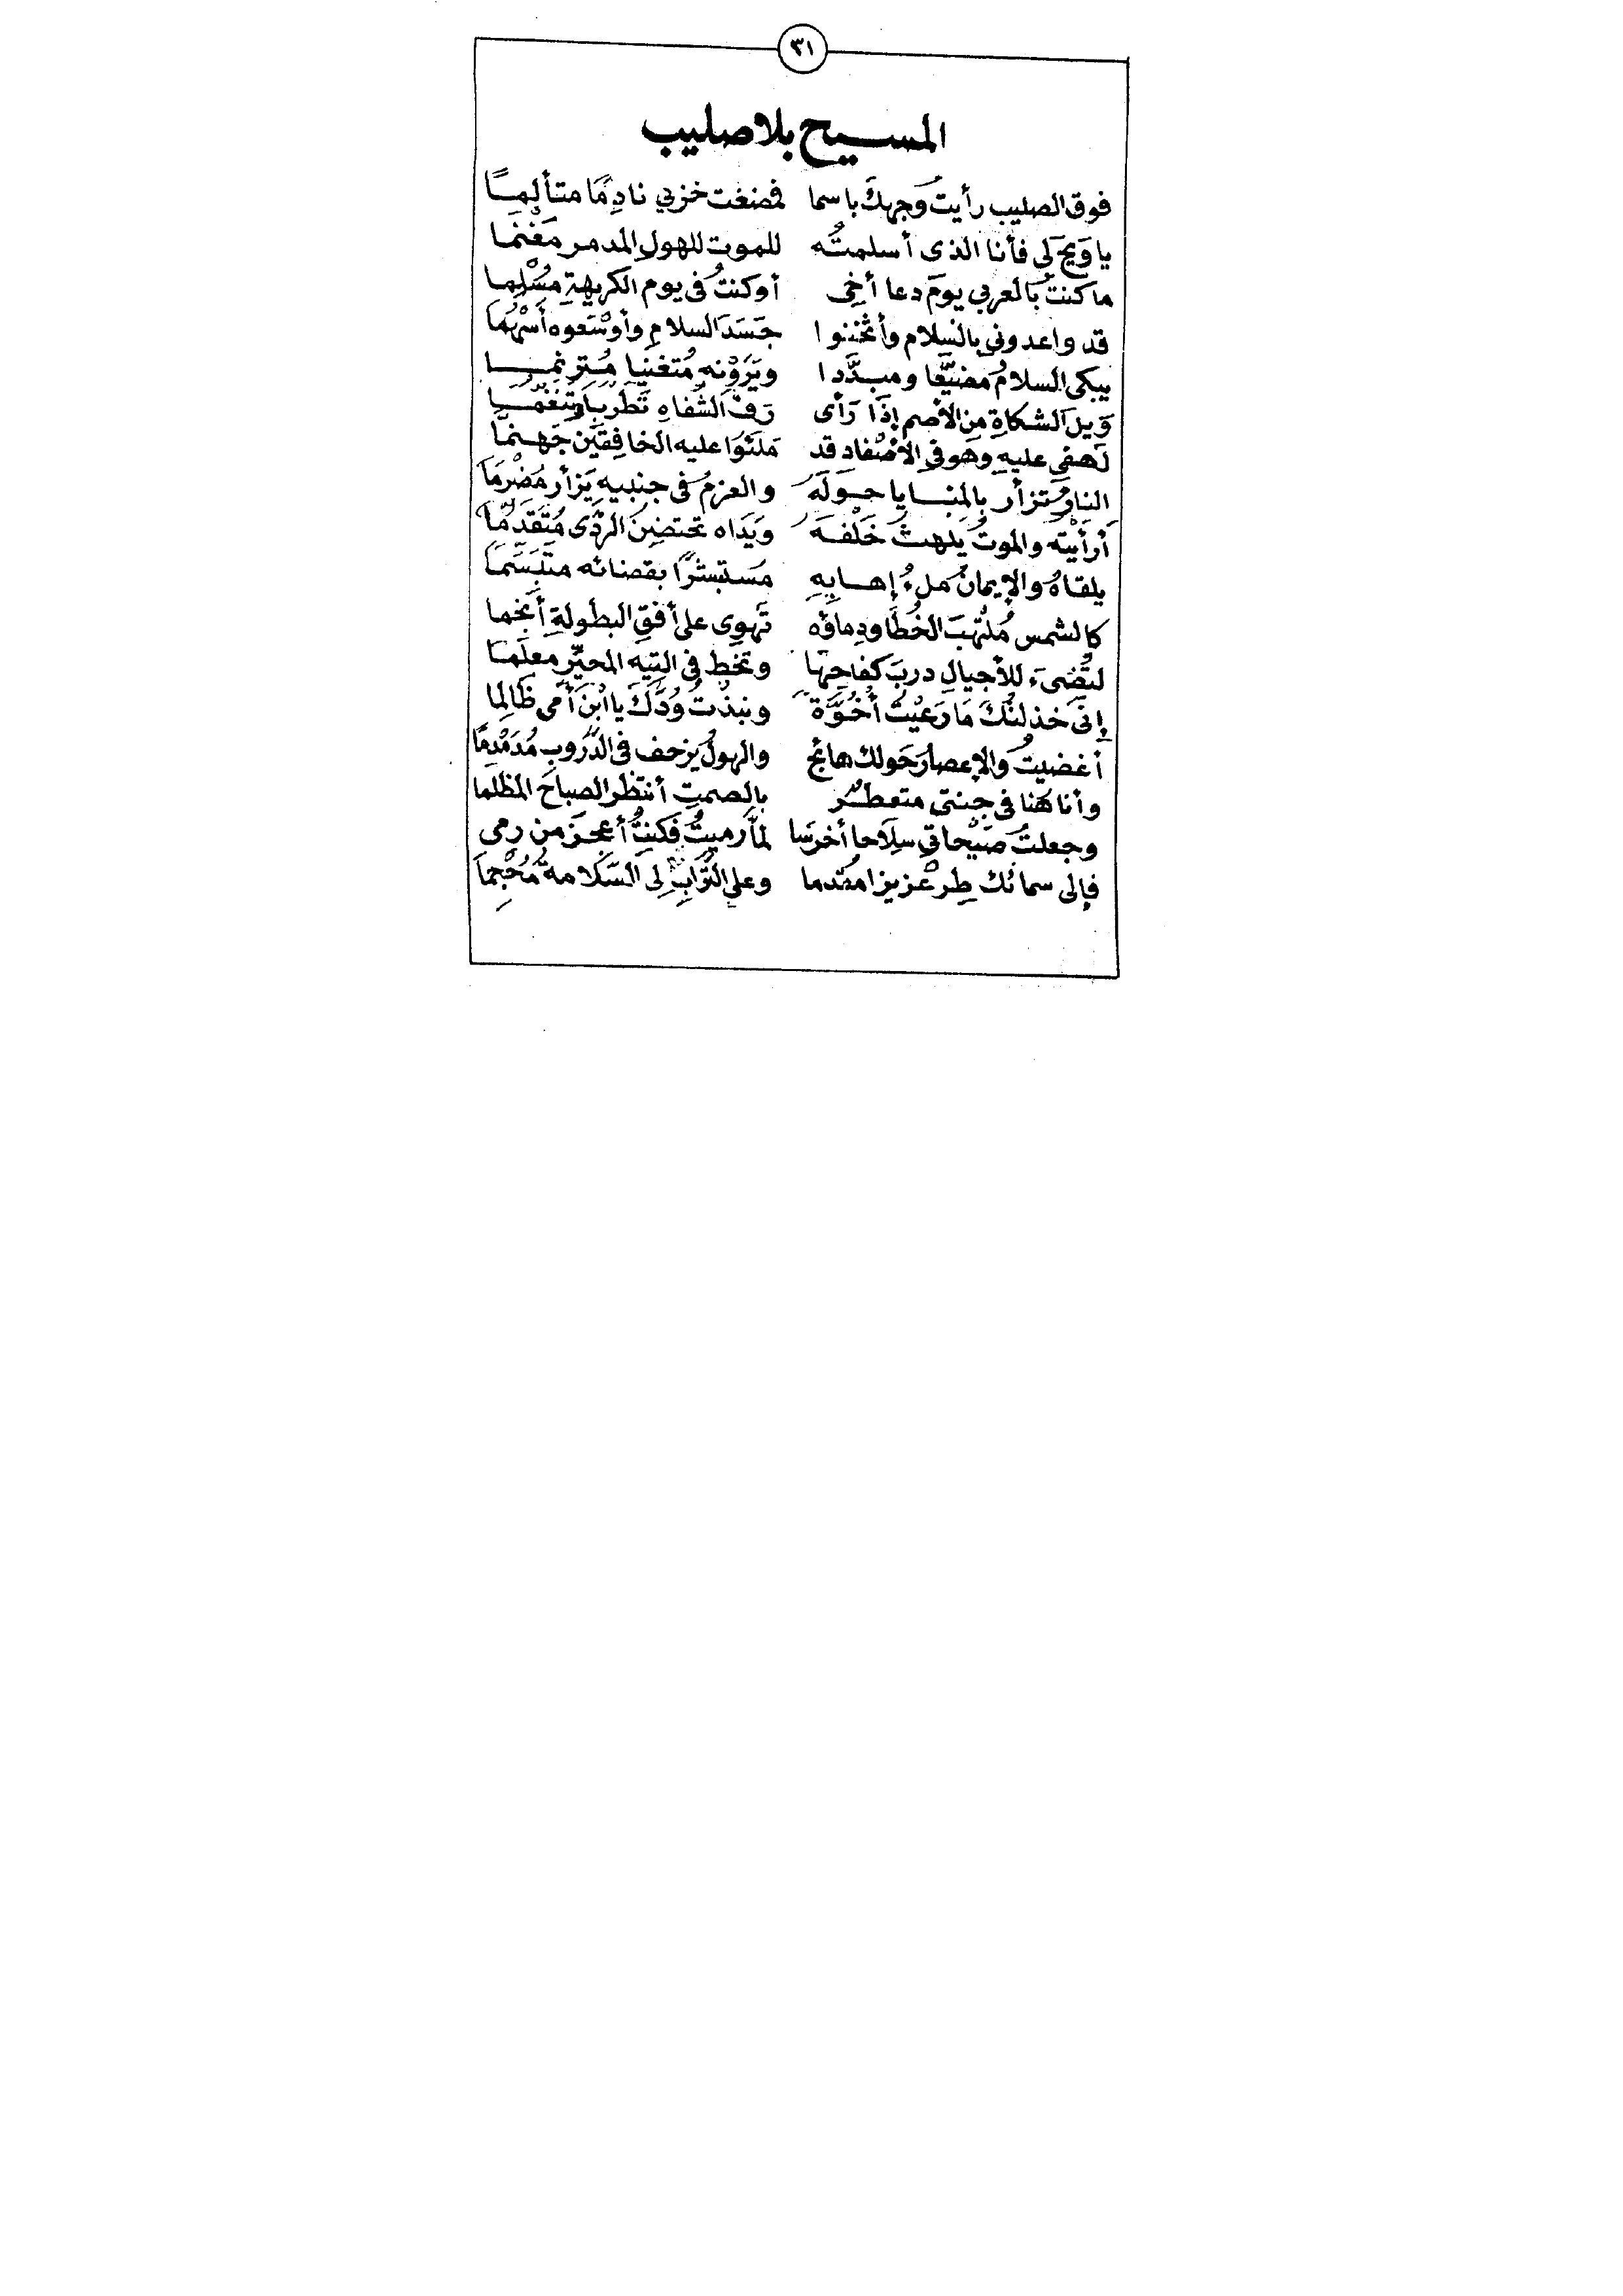 ٣١
المسيح بلا صليب
فوق الصليب رأيتُ وجهكَ باسما فمضغت خزيي نادِمًا متألمًا
يا وَيحَ لي فأنا الذى أسلمتُه للموت للهولِ المدمر مَغْنَما
ما كنتُ بالعربي يومَ دعا أخِى أو كنتُ فى يوم الكريهةِ مُسْلِما
قد واعدوني بالسلام وأثخنوا جَسَدَ السلامِ وأوْسَعوه أسْهُمَا
يبكى السلامُ مضيَّعا ومبدَّدا ويَرَوْنه مُتغنيا مُترنما
وَيلَ الشكاةِ مِن الأصم إذَا رَأى رَفَّ الشفاهِ تَطَرُّبًا وتَنَغُّمَا
لهفي عليهِ وهو في الأصْفاد قد مَلَئوُا عليه الخافِقَين جَهنمَّا
النارُ تزأر بالمنايا حَولَهُ والعزمُ فى جنبيهِ يَزأر مُضْرِمَا
أرأيْتَه والموتُ يلهثُ خَلْفهَ ويَدَاه تحتضِنُ الرَّدَى مُتَقَدِّمًا
يلقاهُ والإيمانُ ملءُ إهابِهِ مُستبشرًا بقضائه متَبَسِّمَا
كالشمس مُلتهبَ الخُطَا ودِماؤه تَهوِى على أفقِ البطولةِ أنجما
لتُضىء للأجيالِ دربَ كفاحِها وتخط فى التيه المحيِّر معلَما
إنّى خذلتُكَ مَا رَعيْتُ أُخُوَّةً ونبذتُ وُدَّكَ يا ابْنَ أمى ظَالِما
أغضيتُ والإعصارُ حَولك هائج والهولُ يزحف فى الدُّروبِ مُدَمْدِمًا
وأنا هُنا فى جنتى متعطرٌ بالصمتِ أنتظر الصباحَ المظلما
وجعلتُ صَيْحاتي سِلَاحا أخرسَا لمَّا رميتُ فكنتُ أعجزَ من رمى
فإلى سمائك طِرْ عزيزا مقدما وعلى التُّرابِ لِى السَّلامةُ مُحْجِمَا